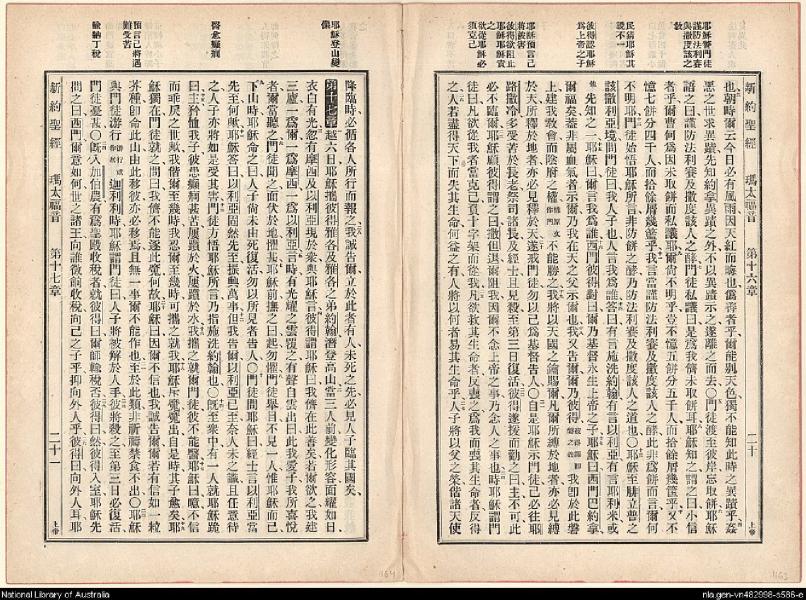 耶穌警門徒
謹防法利賽
與撒度該之
教
民猜耶穌其
說不一
彼得認耶穌
為上帝之子
耶穌預言己
將被害
彼得欲阻止
耶穌耶穌責
欲從耶穌必
須克己
新約聖經 瑪太福音 第十六章 二十 上帝
也朝時爾云今日必有風雨因天紅而晦也偽善者乎爾能別天色獨不能知此時之異蹟乎姦
惡之世求異蹟先知約拿異蹟之外不以異蹟示之遂離之而去〇門徒渡至彼岸忘取餅耶穌
謂之曰謹防法利賽及撒度該人之酵門徒私議曰是為我儕未取餅耳耶穌知之謂之曰小信
者乎爾曹何為因未取餅而私議耶爾尚不明乎不憶五餅分五千人而拾餘屑幾籃乎又不
憶七餅分四千人而拾餘屑幾籃乎我言當謹防法利賽及撒度該人之酵此非為餅而言爾何
不明耶門徒始悟耶穌所言非防餅之酵乃防法利賽及撒度該人之道也〇耶穌至腓立普之
該撒利亞境問門徒曰我人子也人言我為誰答曰有言施洗約翰有言以利亞有言耶利米或
他先知之一耶穌曰爾言我為誰西門彼得對曰爾乃基督永生上帝之子耶穌曰西門巴約拿
爾福矣蓋非屬血氣者示爾乃我在天之父示爾也我又告爾爾乃彼得我即於此磐
上建我教會而陰府之權不能勝之我將以天國之鑰賜爾凡爾所縛於地者亦必見縛
於天所釋於地者亦必見釋於天遂戒門徒勿以己為基督告人〇自是耶穌示門徒己必往耶
路撒冷多受苦於長老祭司諸長及經士且見殺至第三日復活彼得遂援而勸之曰主不可此
必不臨爾耶穌顧彼得謂之曰撒但退爾阻我因爾不念上帝之事乃念人之事也時耶穌謂門
徒曰凡欲從我者當克己負十字架而從我凡欲救其生命者反喪之為我而喪其生命者反得
之人若盡得天下而失其生命何益之有人將以何者易其生命乎人子將以父之榮偕諸天使
耶穌登山變
像
醫愈癲癇
預言己將遇
難受苦
輸納丁稅
降臨時必循各人所行而報之我誠告爾立於此者有人未死之先必見人子臨其國矣
第十七章越六日耶穌攜彼得雅各及雅各之弟約翰潛登高山當三人前變化形容面耀如日
衣白有光忽有摩西及以利亞現於眾與耶穌言彼得謂耶穌曰我儕在此善矣若爾欲之我建
三廬一為爾一為摩西一為以利亞言時有光耀之雲覆之有聲自雲出曰此我愛子我所喜悅
者爾當聽之門徒聞之面伏於地懼甚耶穌前撫之曰起勿懼門徒舉目不見一人惟耶穌而已
下山時耶穌命之曰人子尚未由死復活勿以所見者告人〇門徒問耶穌曰經士言以利亞當
先至何與耶穌答曰以利亞固然先至振興萬事但我告爾以利亞已至奈人未之識且任意待
之人子亦將如是受其害門徒方悟耶穌所言乃指施洗約翰也〇既至眾中有一人就耶穌跪
曰主矜恤我子彼患癲癇甚苦屢躓於火屢躓於水我攜之就爾門徒彼不能醫耶穌曰噫不信
而乖戾之世歟我偕爾至幾時我忍爾至幾時可攜之就我耶穌斥魔魔出自是時其子愈矣耶
穌獨在門徒就之問曰我儕不能逐此魔何故耶穌曰因爾不信也我誠告爾爾若有信如一粒
芥種即命此山由此移彼亦必移焉且無一事爾不能作也至於此類非祈禱禁食不出〇耶穌
與門徒遊行加利利時耶穌謂門徒曰人子將被解於人手彼將殺之至第三日必復活
門徒憂甚〇既入加伯農有為聖殿收稅者就彼得曰爾師輸稅否彼得曰然彼得入室耶穌先
問之曰西門爾意如何世之諸王向誰徵餉收稅向己之子乎抑向外人乎彼得曰向外人耶耳
新約聖經 瑪太福音 第十七章 二十一 上帝
1164
1163
National Library of Australia
nla.gen-vn482998-s586-e